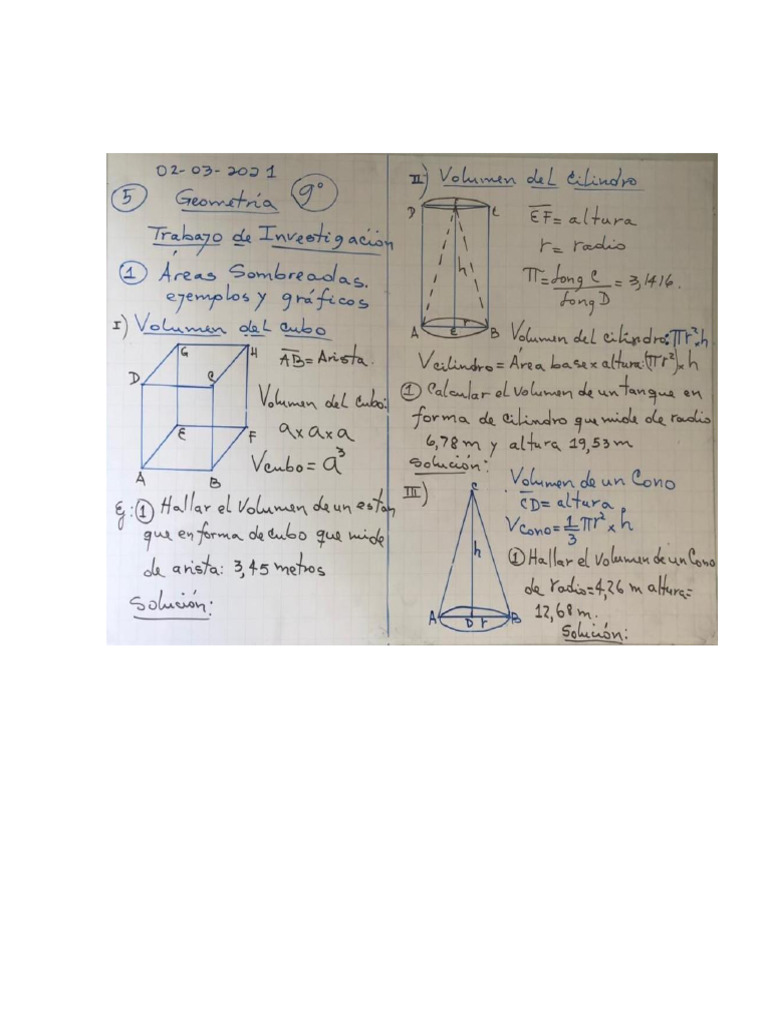 02-03-2021
5 Geometría 9°
Trabajo de Investigación
1 Áreas Sombreadas.
ejemplos y gráficos
I) Volumen del cubo
G H
AB = Arista.
D C
Volumen del cubo:
a x a x a
E F
Vcubo = a³
A B
Ej: 1 Hallar el Volumen de un estan
que en forma de cubo que mide
de arista: 3,45 metros
Solución:
II) Volumen del Cilindro
D C
EF = altura
r = radio
h
π = Long C / Long D = 3,1416.
A E r B
Volumen del cilindro: πr².h
Vcilindro = Área base x altura: (πr²) x h
1 Calcular el volumen de un tanque en
forma de cilindro que mide de radio
6,78 m y altura 19,53 m
Solución:
III) Volumen de un Cono
C
CD = altura
Vcono = 1/3 πr² x h
h
1 Hallar el volumen de un Cono
de radio = 4,26 m altura =
12,68 m.
A D r B
Solución: